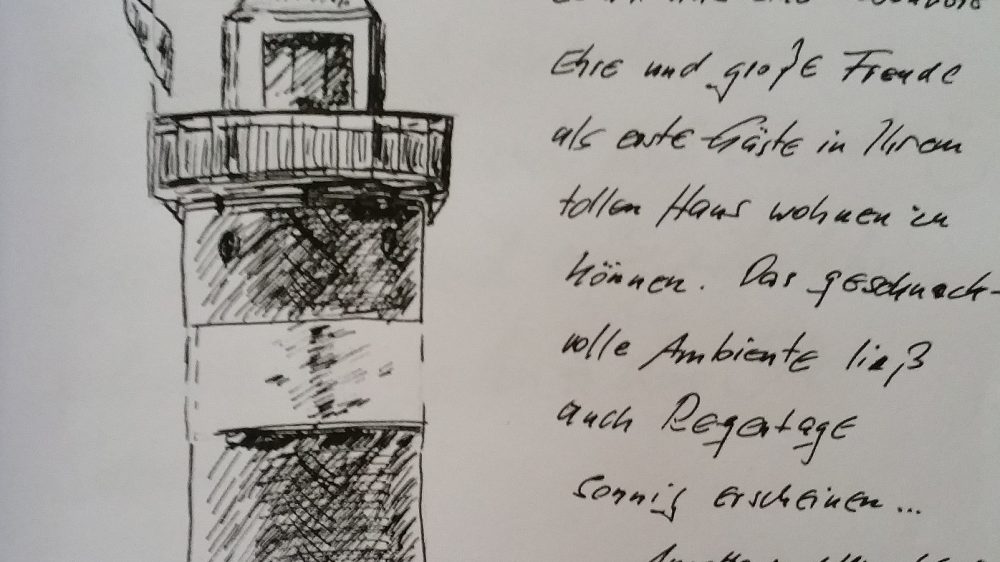 Ehre und große Freude
als erste Gäste in Ihrem
tollen Haus wohnen zu
können. Das geschmack-
volle Ambiente ließ
auch Regentage
sonnig erscheinen...